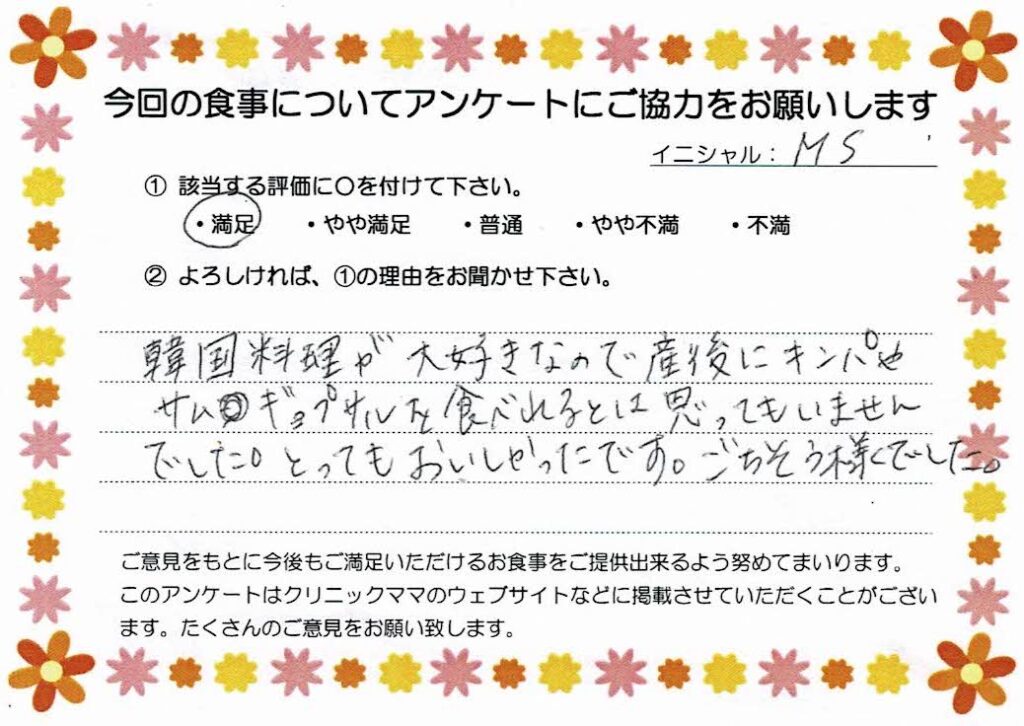 今回の食事についてアンケートにご協力をお願いします
イニシャル： MS
① 該当する評価に〇を付けて下さい。
・満足 ・やや満足 ・普通 ・やや不満 ・不満
② よろしければ、①の理由をお聞かせ下さい。
韓国料理が大好きなので産後にキンパや
サムギョプサルを食べれるとは思ってもいません
でした。とってもおいしかったです。ごちそう様でした。
ご意見をもとに今後もご満足いただけるお食事をご提供出来るよう努めてまいります。
このアンケートはクリニックママのウェブサイトなどに掲載させていただくことがござい
ます。たくさんのご意見をお願い致します。